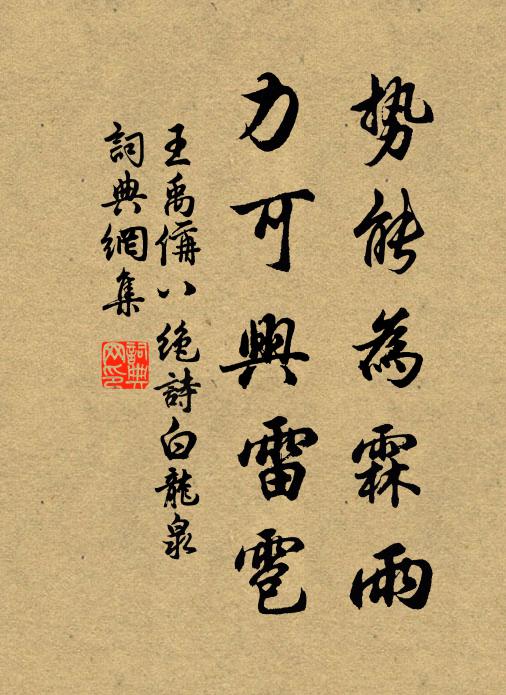 势能為霖雨
力可興雷雹
王禹偁八绝詩白龍泉
詞典網集
詞典網印